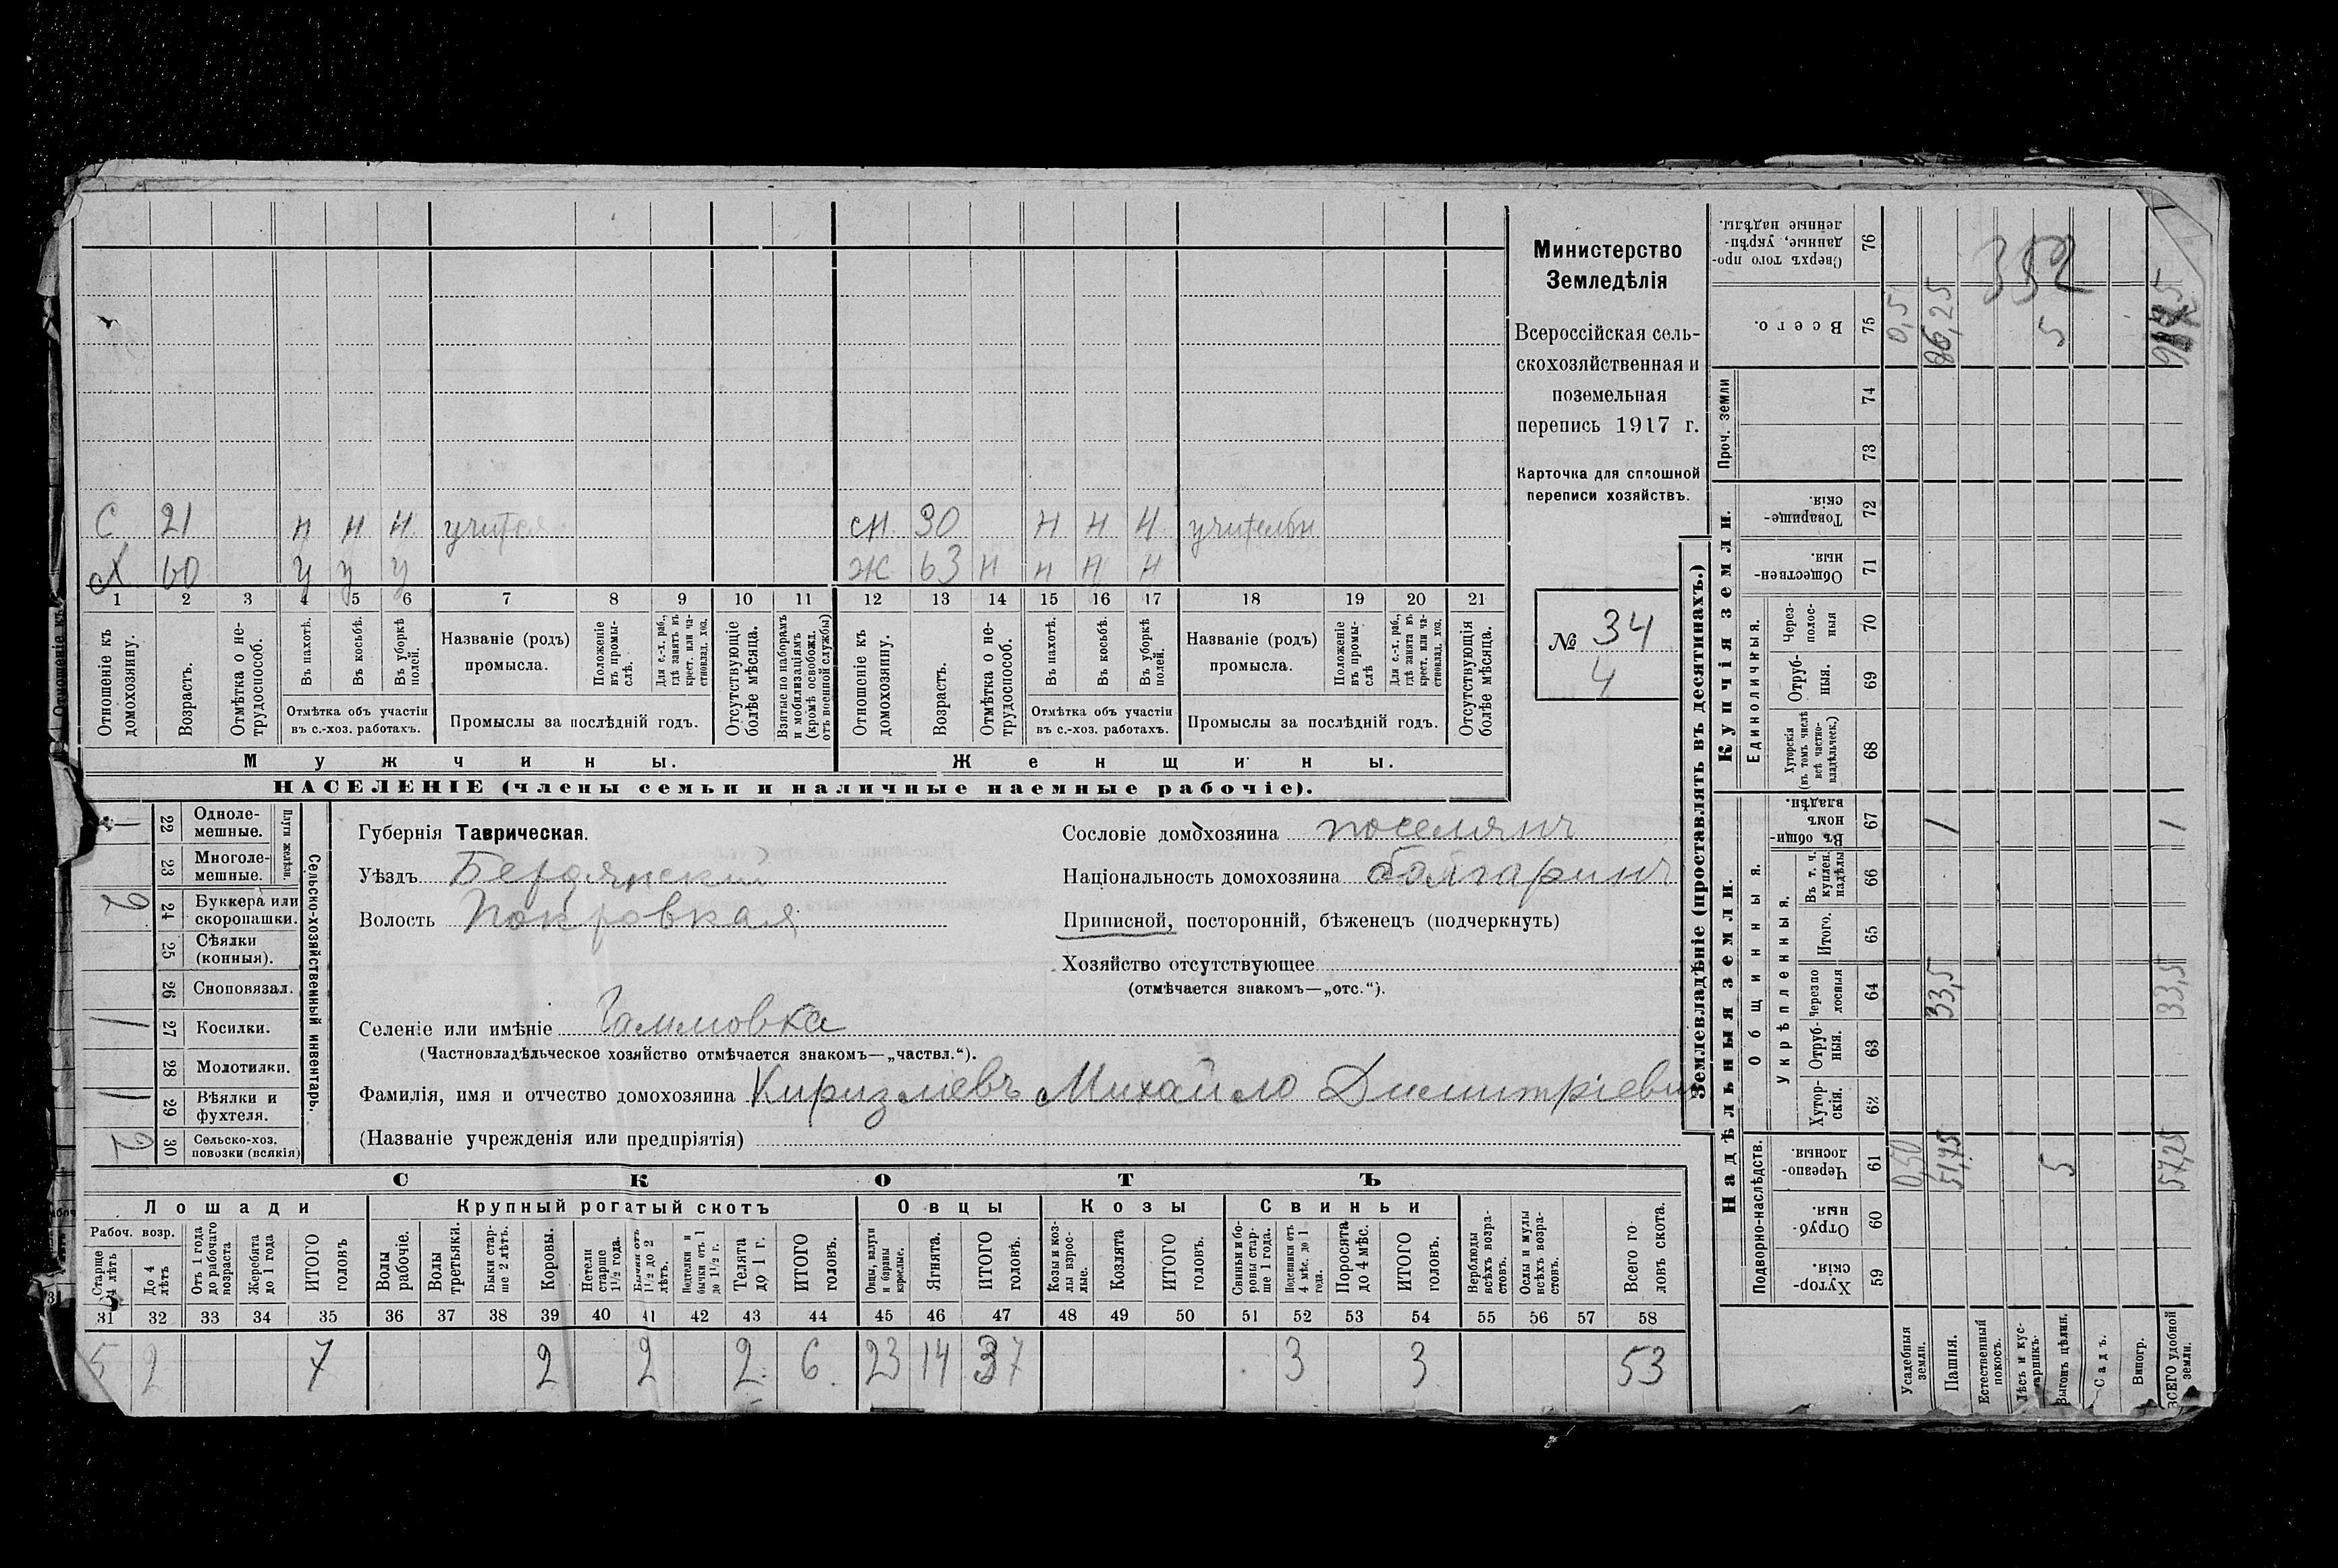 С 21 н н н учител сн. 30 н н н учительн
Х 60 у у у ж 63 н н н н
1 2 3 4 5 6 7 8 9 10 11 12 13 14 15 16 17 18 19 20 21
Отношеніе къ домохозяину.
Возрастъ.
Отмѣтка о нетрудоспособ.
Въ пахотѣ.
Въ косьбѣ.
Въ уборкѣ полей.
Отмѣтка объ участіи
въ с.-хоз. работахъ.
Названіе (родъ)
промысла.
Положеніе въ промыслѣ.
Для с.-х. раб., гдѣ занятъ въ крест. или частновлад. хоз.
Промыслы за послѣдній годъ.
Отсутствующіе болѣе мѣсяца.
Взятые по наборамъ и мобилизаціямъ (кромѣ освобожд. отъ военной службы)
Отношеніе къ домохозяину.
Возрастъ.
Отмѣтка о нетрудоспособ.
Въ пахотѣ.
Въ косьбѣ.
Въ уборкѣ полей.
Отмѣтка объ участіи
въ с.-хоз. работахъ.
Названіе (родъ)
промысла.
Положеніе въ промыслѣ
Для с.-х. раб., гдѣ занята въ крест. или частновлад. хоз.
Промыслы за послѣдній годъ.
Отсутствующія болѣе мѣсяца.
Мужчины.
Женщины.
НАСЕЛЕНІЕ (члены семьи и наличные наемные рабочіе).
Министерство
Земледѣлія
Всероссійская сель-
скохозяйственная и
поземельная
перепись 1917 г.
Карточка для сплошной
переписи хозяйствъ.
№ 34
4
Сельско-хозяйственный инвентарь.
Плуги желѣзн.
1 22 Одноле-
мешные.
23 Многоле-
мешные.
2 24 Буккера или
скоропашки.
25 Сѣялки
(конныя).
26 Сноповязал.
1 27 Косилки.
28 Молотилки.
1 29 Вѣялки и
фухтеля.
2 30 Сельско-хоз.
повозки (всякія)
Губернія Таврическая.
Уѣздъ Бердянскій
Волость Покровкая
Селеніе или имѣніе
(Частновладѣльческое хозяйство отмѣчается знакомъ—„частвл.“).
Фамилія, имя и отчество домохозяина Киризліевъ Михайло Димитріевич
(Названіе учрежденія или предпріятія)
Сословіе домохозяина поселянъ
Національность домохозяина болгаринъ
Приписной, посторонній, бѣженецъ (подчеркнуть)
Хозяйство отсутствующее
(отмѣчается знакомъ—„отс.“).
СКОТЪ
Лошади
Крупный рогатый скотъ
Овцы
Козы
Свиньи
Рабоч. возр.
Старше 4 лѣтъ
До 4 лѣтъ
Отъ 1 года до рабочаго возраста
Жеребята до 1 года
ИТОГО головъ
Волы рабочіе.
Волы третьяки.
Быки старше 2 лѣтъ.
Коровы.
Нетели старше 1½ года.
Бычки отъ 1½ до 2 лѣтъ.
Подтелки и бычки отъ 1 до 1½ г.
Телята до 1 г.
ИТОГО головъ.
Овцы, валухи и бараны взрослые.
Ягнята.
ИТОГО головъ.
Козы и козлы взрослые.
Козлята
ИТОГО головъ.
Свиньи и боровы старше 1 года.
Подсвинки отъ 4 мѣс. до 1 года.
Поросята до 4 мѣс.
ИТОГО головъ.
Верблюды всѣхъ возрастовъ.
Ослы и мулы всѣхъ возрастовъ.
Всего головъ скота.
31 32 33 34 35 36 37 38 39 40 41 42 43 44 45 46 47 48 49 50 51 52 53 54 55 56 57 58
5 2 7 2 2 2 6 23 14 37 3 3 53
Землевладѣніе (проставлять въ десятинахъ.)
Надѣльныя земли.
Купчія земли.
Проч. земли
Подворно-наслѣдств.
Общинныя.
Укрѣпленныя.
Единоличныя.
Сверхъ того проданные, укрѣпленные надѣлы. 76
Всего. 75 0,5 86,25 5
352
74
73
Товарищескія. 72
Общественныя. 71
Черезполосныя 70
Отрубныя. 69
Хуторскія (въ томъ числѣ всѣ частновладѣльческ.) 68
Въ общинномъ владѣн. 67 1 1
Въ т. ч. куплен. надѣлы 66
Итого. 65
Черезполосныя 64 33,5 33,5
Отрубныя. 63
Хуторскія. 62
Черезполосныя. 61 0,50 51,75 5 57,25
Отрубныя. 60
Хуторскія. 59
Усадебныя земли.
Пашня.
Естественный покосъ.
Лѣсъ и кустарникъ.
Выгонъ цѣлин.
Садъ.
Виногр.
ВСЕГО удобной земли.